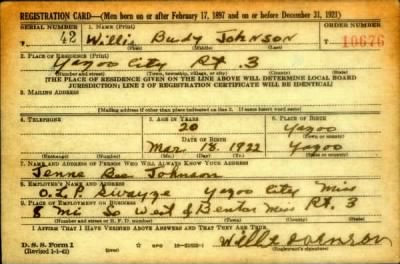 REGISTRATION CARD—(Men born on or after February 17, 1897 and on or before December 31, 1921)
SERIAL NUMBER 1. NAME (Print) ORDER NUMBER
T 42 Willie Budy Johnson 10676
(First) (Middle) (Last)
2. PLACE OF RESIDENCE (Print)
Yazoo City Rt. 3
(Number and street) (Town, township, village, or city) (County) (State)
[THE PLACE OF RESIDENCE GIVEN ON THE LINE ABOVE WILL DETERMINE LOCAL BOARD
JURISDICTION; LINE 2 OF REGISTRATION CERTIFICATE WILL BE IDENTICAL]
3. MAILING ADDRESS
[Mailing address if other than place indicated on line 2. If same insert word same]
4. TELEPHONE 5. AGE IN YEARS 6. PLACE OF BIRTH
20 Yazoo
DATE OF BIRTH (Town or county)
Mar. 18. 1922 Yazoo
(Exchange) (Number) (Mo.) (Day) (Yr.) (State or country)
7. NAME AND ADDRESS OF PERSON WHO WILL ALWAYS KNOW YOUR ADDRESS
Johnson
8. EMPLOYER'S NAME AND ADDRESS
Swayze Yazoo City Miss
9. PLACE OF EMPLOYMENT OR BUSINESS
8 mi So. West of Benton Miss Rt. 3
(Number and street or R. F. D. number) (Town) (County) (State)
I AFFIRM THAT I HAVE VERIFIED ABOVE ANSWERS AND THAT THEY ARE TRUE.
D. S. S. Form 1
(Revised 1-1-42) (over)
Willie Johnson
(Registrant's signature)